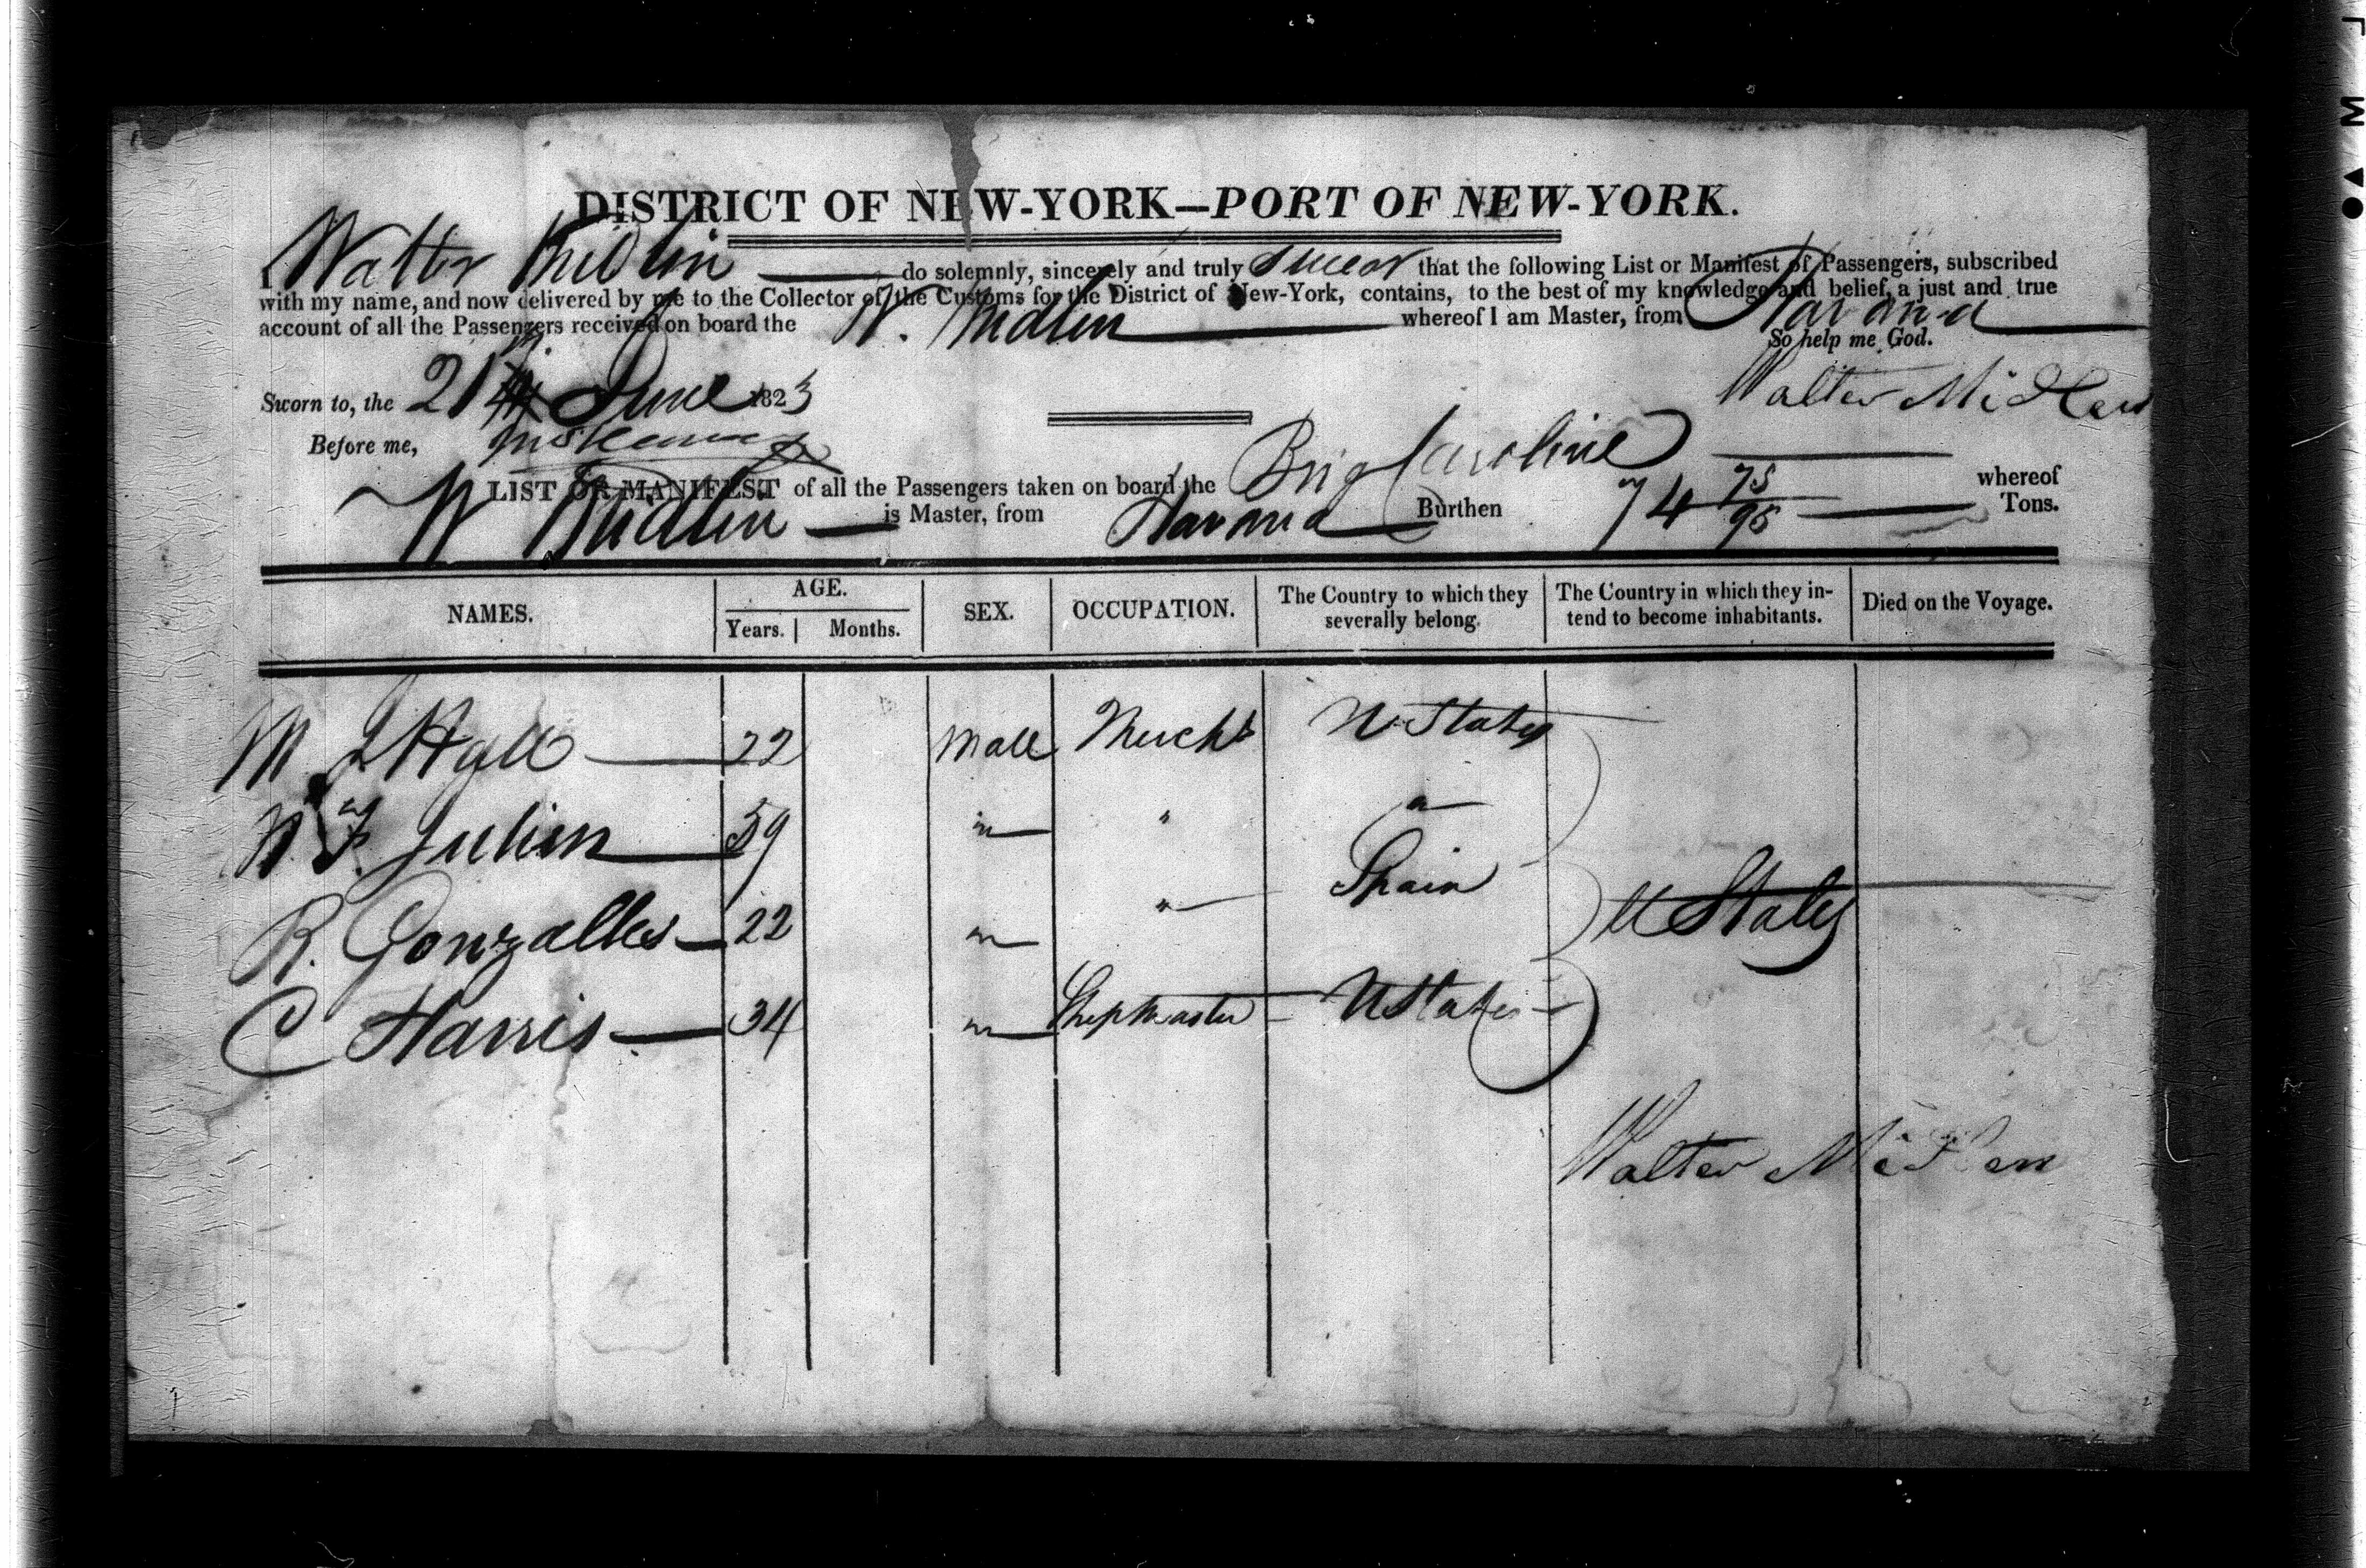 DISTRICT OF NEW-YORK—PORT OF NEW-YORK.
I Walter Midlin do solemnly, sincerely and truly swear that the following List or Manifest of Passengers, subscribed
with my name, and now delivered by me to the Collector of the Customs for the District of New-York, contains, to the best of my knowledge and belief, a just and true
account of all the Passengers received on board the W. Midlin whereof I am Master, from Havana
So help me God.
Sworn to, the 21 June 1823
Walter Midlen
Before me,
LIST OR MANIFEST of all the Passengers taken on board the Brig Caroline whereof
W Midlin is Master, from Havana Burthen 74 75/95 Tons.
NAMES. AGE. SEX. OCCUPATION. The Country to which they severally belong. The Country in which they intend to become inhabitants. Died on the Voyage.
Years. Months.
M L Hall 22 Male Mercht U States
N. F. Julien 39 " " "
R. Gonzalles 22 " " Spain U States
C Harris 34 " Shipmaster U States
Walter Midlen